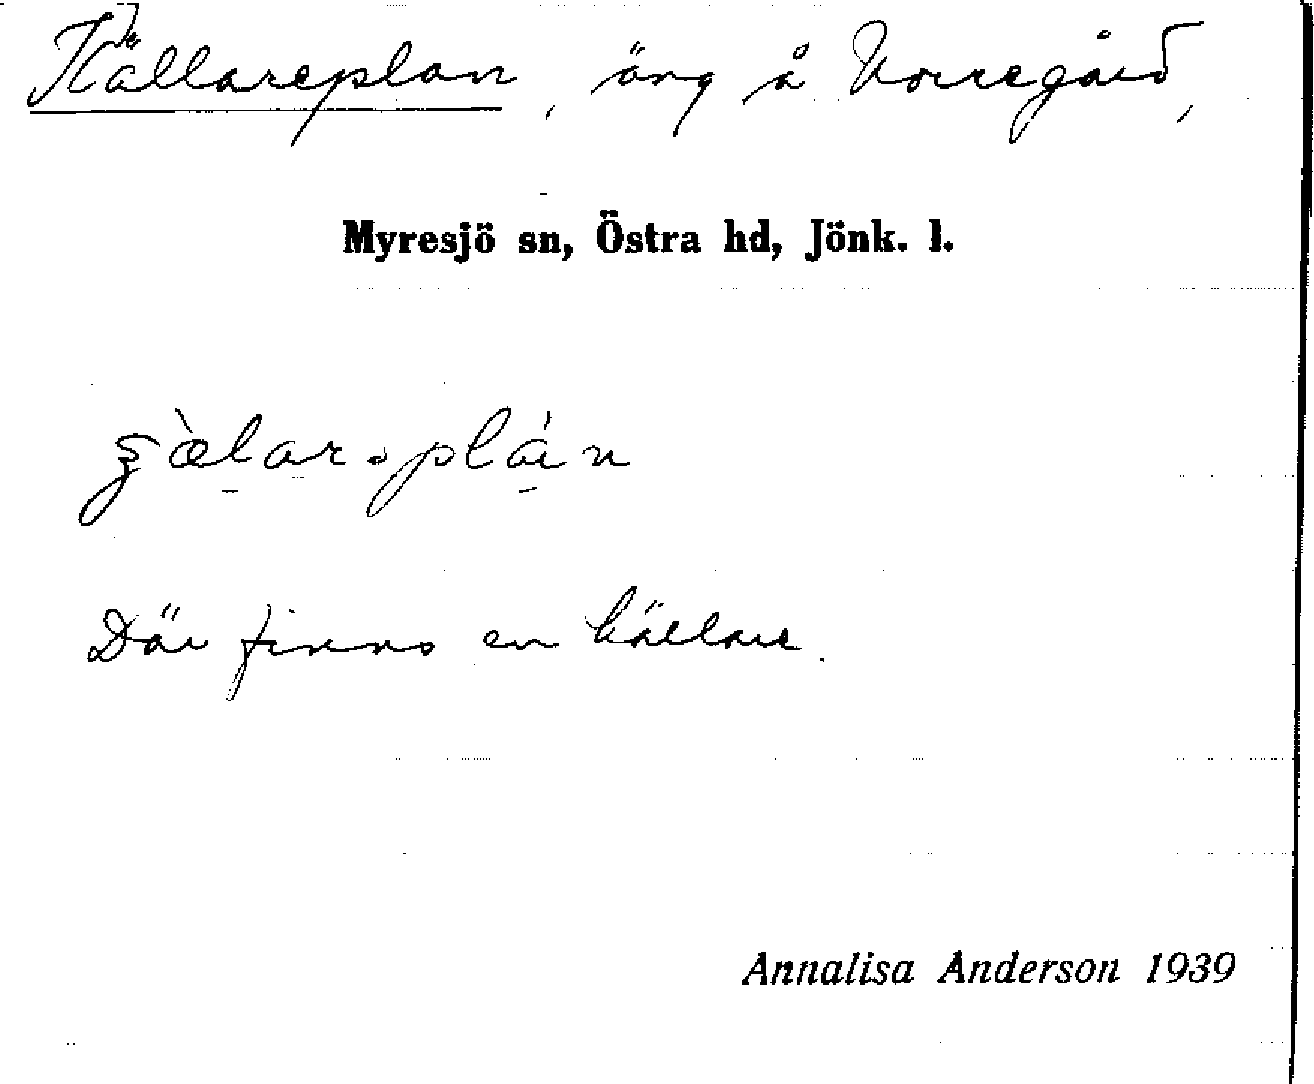 Källareplan, äng å Norregård,
Myresjö sn, Östra hd, Jönk. l.
Där finns en källare.
Annalisa Anderson 1939